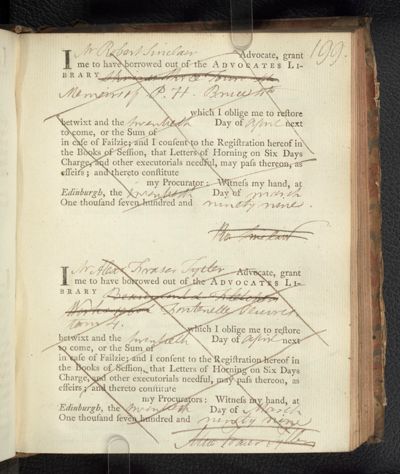 199.
I Mr Robert Sinclair Advocate, grant
me to have borrowed out of the ADVOCATES LI-
BRARY
Memoirs of P. H. Bruce 4to
which I oblige me to restore
betwixt and the twentieth Day of April next
to come, or the Sum of
in case of Failzie; and I consent to the Registration hereof in
the Books of Session, that Letters of Horning on Six Days
Charge, and other executorials needful, may pass thereon, as
effeirs; and thereto constitute
my Procurator: Witness my hand, at
Edinburgh, the twentieth Day of March
One thousand seven hundred and ninety nine.
Ro. Sinclair
I Mr Alexr Fraser Tytler Advocate, grant
me to have borrowed out of the ADVOCATES LI-
BRARY
Fontenelle Oeuvres
tom 4.
which I oblige me to restore
betwixt and the twentieth Day of April next
to come, or the Sum of
in case of Failzie; and I consent to the Registration hereof in
the Books of Session, that Letters of Horning on Six Days
Charge, and other executorials needful, may pass thereon, as
effeirs; and thereto constitute
my Procurators: Witness my hand, at
Edinburgh, the twentieth Day of March
One thousand seven hundred and ninety nine
Alexr Fraser Tytler